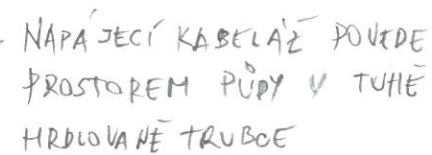 - NAPÁJECÍ KABELÁŽ POVEDE
PROSTOREM PŮDY V TUHÉ
HRDLOVANÉ TRUBCE